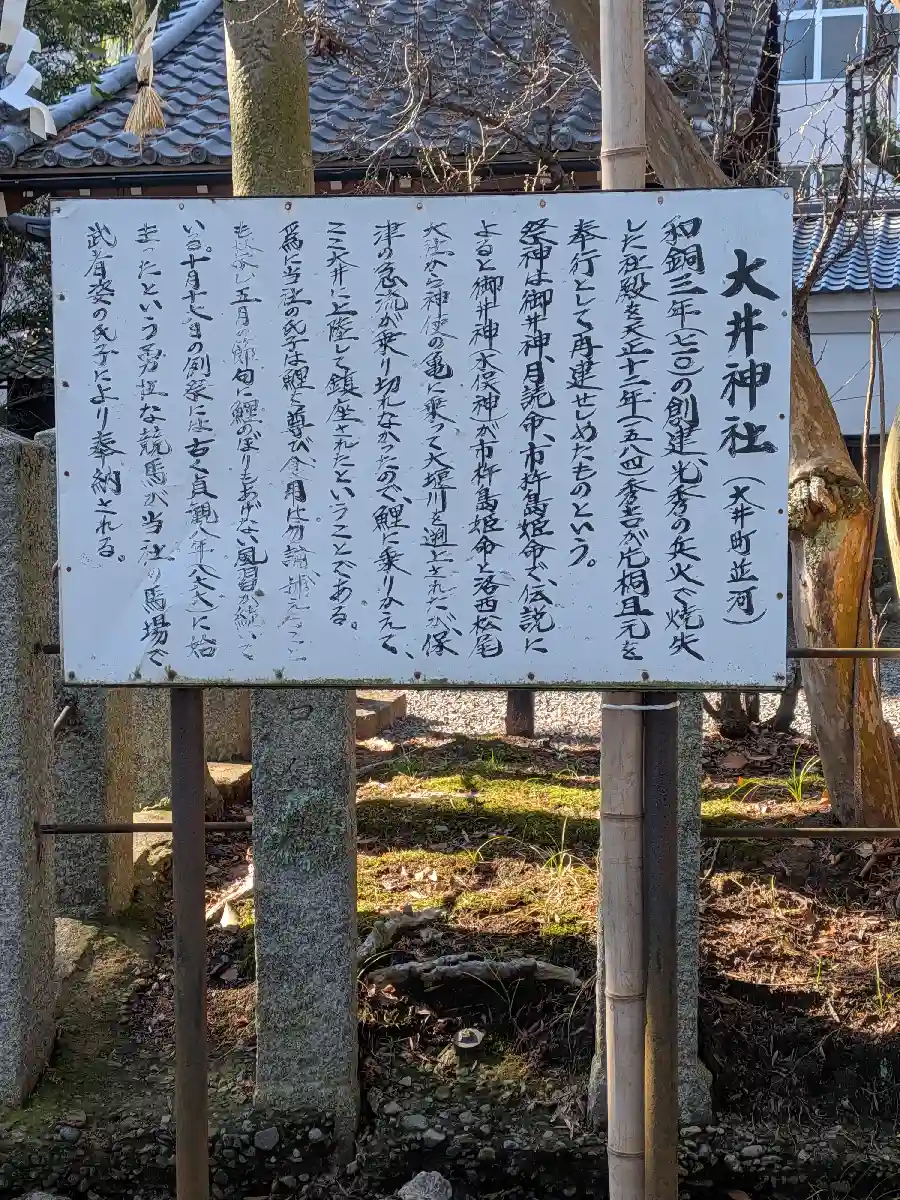 大井神社（大井町並河）
和銅三年（七一〇）の創建、光秀の兵火で焼失
した社殿を天正十二年（一五八四）秀吉が片桐且元を
奉行として再建せしめたものという。
祭神は御井神、月読命、市杵島姫命で、伝説に
よると御井神（木俣神）が市杵島姫命と洛西松尾
大社から神使の亀に乗って大堰川を遡上されたが保
津の急流が乗り切れなかったので、鯉に乗りかえて、
ここ大井に上陸して鎮座されたということである。
為に当社の氏子は鯉を尊び食用は勿論捕えること
も 五月の節句に鯉のぼりもあげない風習が続いて
いる。十月十七日の例祭には古く貞観八年（八六六）に始
まったという勇壮な競馬が当社の馬場で
武者姿の氏子により奉納される。